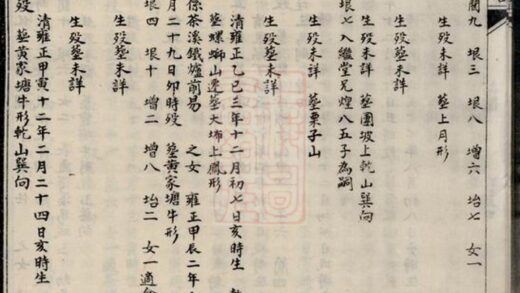 九 垠三 垠八 增六 坮七 女一
生殁未詳 塟上月形
生殁塟未詳
生殁未詳 塟團坡上乾山巽向
垠七 入繼堂兄煌八五子為嗣
生殁未詳 塟栗子山
生殁塟未詳
清雍正乙巳三年十二月初七日亥時生
塟螺螄山遷塟大垇上鳳形
徐茶溪鐵爐前易 之女 雍正甲辰二年
月二十九日卯時殁 塟黃家塘牛形
垠四 垠十 增二 增八 坮二 女一適
生殁塟未詳
生殁塟未詳
清雍正甲寅十二年二月二十四日亥時生
殁 塟黃家塘牛形乾山巽向